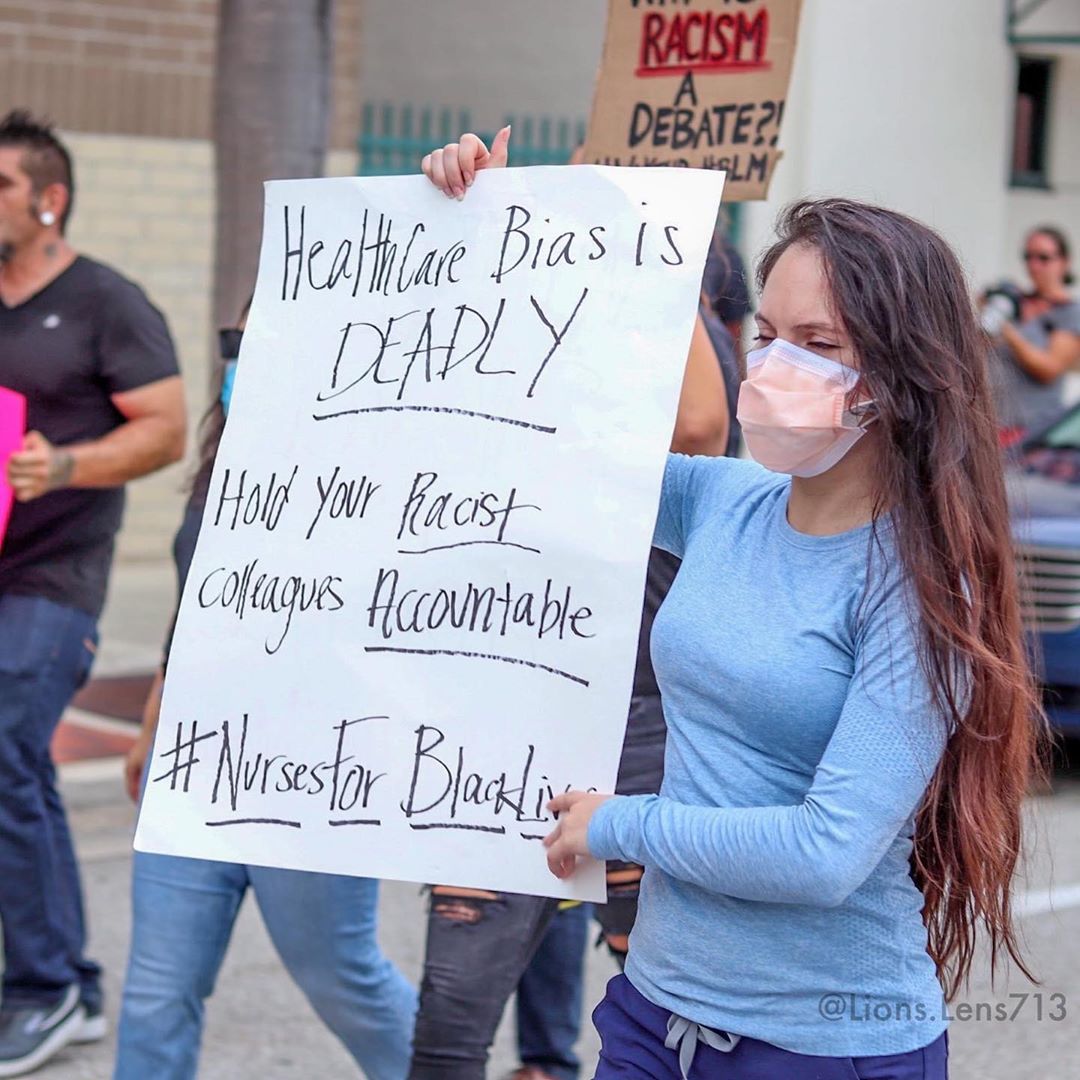 RACISM
A
DEBATE?!
HealthCare Bias is
DEADLY
Hold Your Racist
colleagues Accountable
#NursesForBlackLiv
@Lions.Lens713